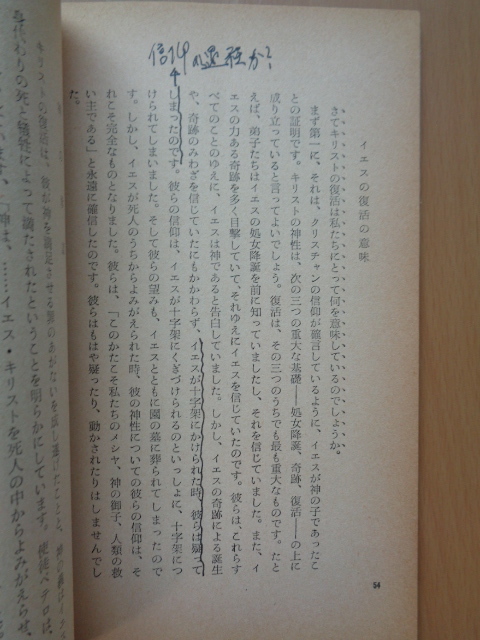 信仰の か?
イエスの復活の意味
さてキリストの復活は私たちにとって何を意味しているのでしょうか。
まず第一に、それは、クリスチャンの信仰が確言しているように、イエスが神の子であったこ
との証明です。キリストの神性は、次の三つの重大な基礎――処女降誕、奇跡、復活――の上に
成り立っていると言ってよいでしょう。復活は、その三つのうちでも最も重大なものです。たと
えば、弟子たちはイエスの処女降誕を前に知っていましたし、それを信じていました。また、イ
エスの力ある奇跡を多く目撃していて、それゆえにイエスを信じていたのです。彼らは、これらす
べてのことのゆえに、イエスは神であると告白していました。しかし、イエスの奇跡による誕生
や、奇跡のみわざを信じていたにもかかわらず、イエスが十字架にかけられた時、彼らは疑って
しまったのです。彼らの信仰は、イエスが十字架にくぎづけられるのといっしょに、十字架につ
けられてしまいました。そして彼らの望みも、イエスとともに園の墓に葬られてしまったので
す。しかし、イエスが死人のうちからよみがえられた時、彼の神性についての彼らの信仰は、そ
れこそ完全なものとなりました。彼らは、「このかたこそ私たちのメシヤ、神の御子、人類の救
い主である」と永遠に確信したのです。彼らはもはや疑ったり、動かされたりはしませんでし
た。
54
キリストの復活は、彼が神を満足させる罪のあがないを成し遂げたことと、
死と犠牲によって満たされたということを明らかにしています。使徒ペテロは、
神は、……イエス・キリストを死人の中からよみがえらせ、